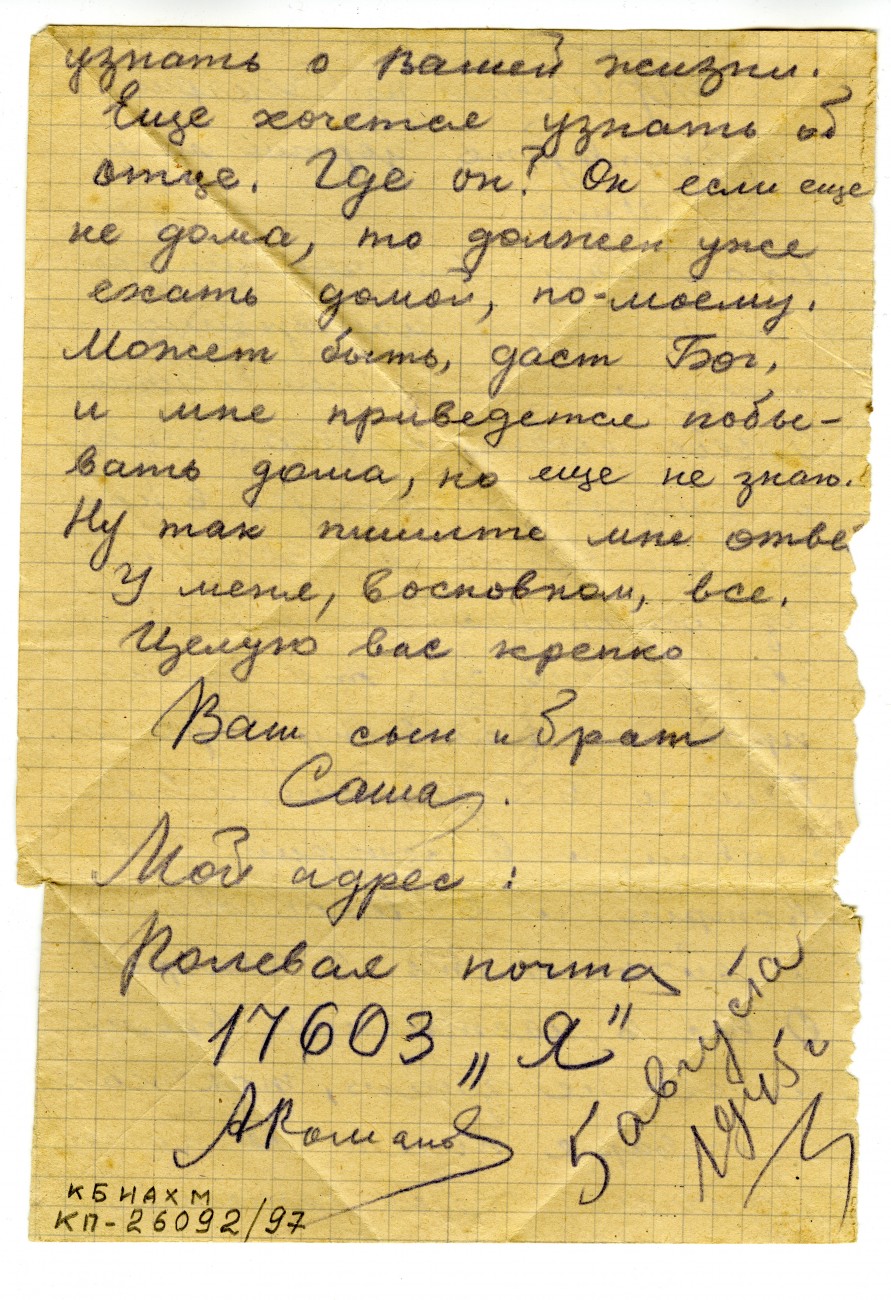 узнать о вашей жизни.
Еще хочется узнать об
отце. Где он? Он если еще
не дома, то должен уже
ехать домой, по-моему.
Может быть, даст Бог,
и мне приведется побы-
вать дома, но еще не знаю.
Ну так пишите мне отве
У меня, восновном, все.
Целую вас крепко
Ваш сын и брат
Саша.
Мой адрес:
Полевая почта
17603 „Я"
АРоманов
5 августа
1945 г
КБИАХМ
КП-26092/97